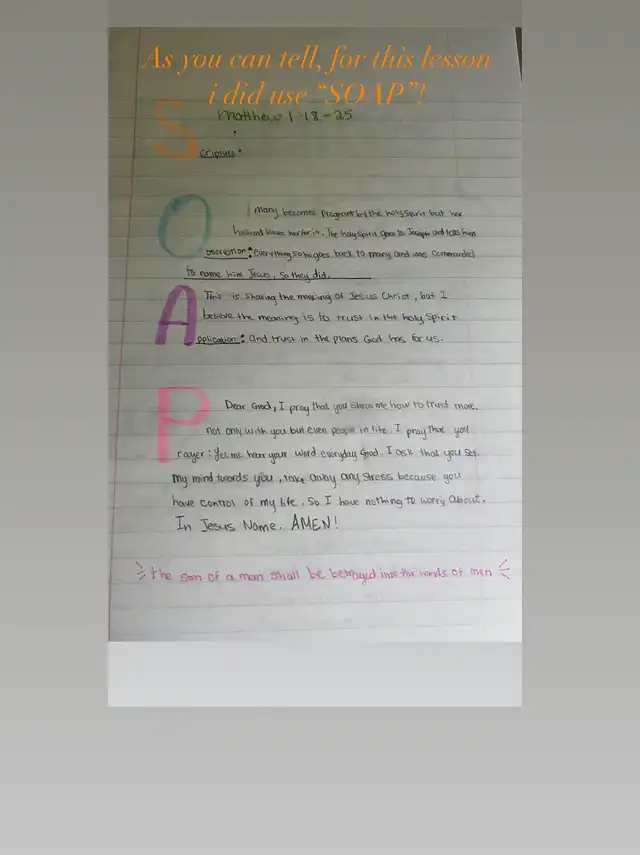 As you can tell, for this lesson
i did use "SOAP"!
Matthew 1:18-25
Scripture:
Mary becomes pregnant by the holy spirit but her
husband leaves her for it. The holy spirit goes to Joseph and tells him
Observation: everything so he goes back to mary and was commanded
to name him Jesus, so they did.
This is showing the making of Jesus Christ, but I
believe the meaning is to trust in the holy spirit
Application: and trust in the plans God has for us.
Dear God, I pray that you show me how to trust more,
not only with you but even people in life. I pray that you
Prayer: let me hear your word everyday God. I ask that you set
my mind twords you, take away any stress because you
have control of my life. So I have nothing to worry about.
In Jesus Name. AMEN!
the son of a man shall be betrayed into the hands of men